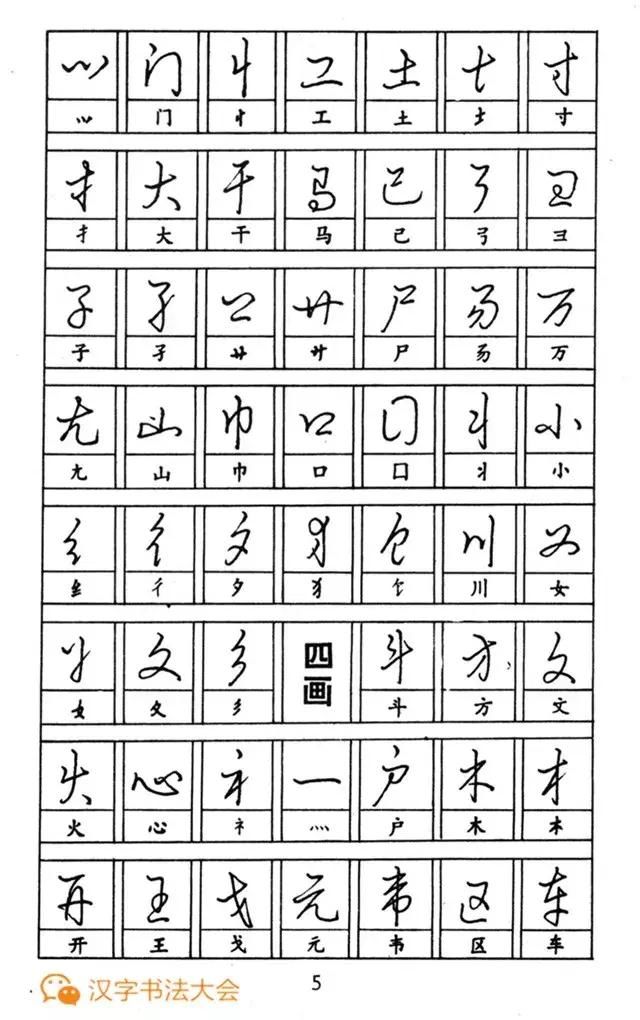 ⺍ 门 忄 工 土 土 寸
⺍ 门 忄 工 土 土 寸
扌 大 干 马 已 弓 彐
扌 大 干 马 已 弓 彐
子 孑 艹 廾 尸 𠃓 万
子 孑 艹 廾 尸 𠃓 万
尢 山 巾 口 囗 丬 小
尢 山 巾 口 囗 丬 小
纟 彳 夕 犭 饣 川 女
纟 彳 夕 犭 饣 川 女
女 夂 彡 四画 斗 方 文
女 夂 彡 斗 方 文
火 心 礻 灬 户 木 木
火 心 礻 灬 户 木 木
开 王 戈 元 韦 区 车
开 王 戈 元 韦 区 车
汉字书法大会
5